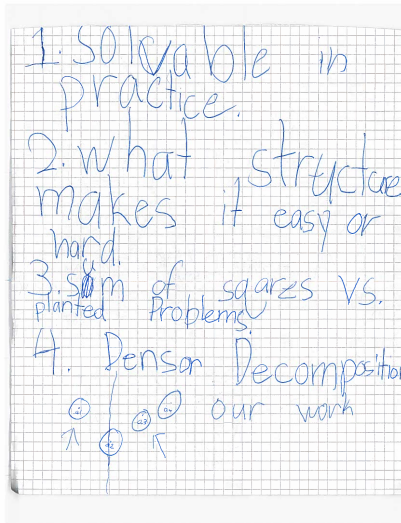 1. Solvable in
practice.
2. what structure
makes it easy or
hard.
3. sum of sqares vs.
planted Problems.
4. Densor Decomposition
our work
a2 a3